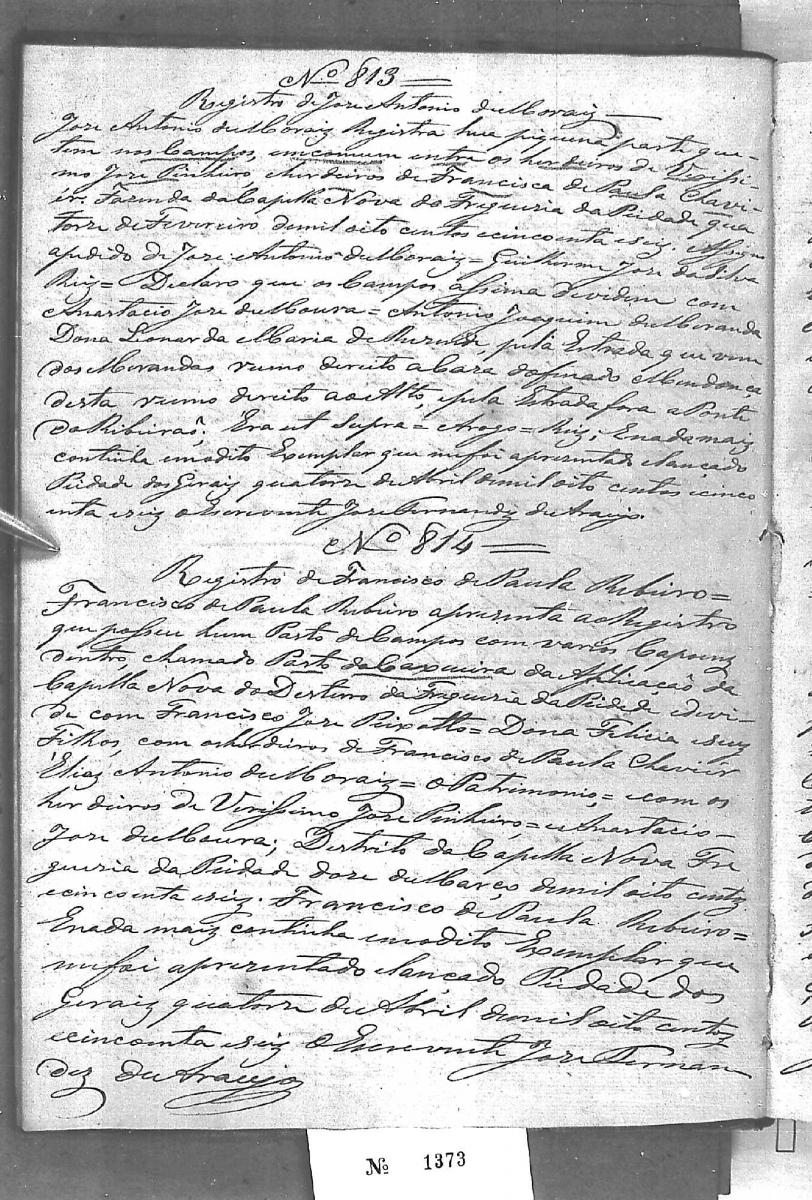 Nº 813 =
Registro de Joze Antonio de Moraiz —
Joze Antonio de Moraiz Registra hua piquena parte que
tem nos Campos, em comum entre os herdeiros de Verissi-
mo Joze Pinheiro, e herdeiros de Francisca de Paula Chavi-
ér. Fazenda da Capella Nova da Freguezia da Piedade qua
torze de Fevereiro de mil oito centos e cincoenta e seiz. Assigno
a pedido de Joze Antonio de Moraiz = Guilherme Joze da Silva
Reiz = Declaro que os Campos assima dividem com
Anastacio Joze de Moura = Antonio Joaquim de Moranda
Dona Lionarda Maria de Rezende, pela Estrada que vem
dos Morandas rumo direito a Caza do finado Mendonça,
desta rumo direito ao Alto, e pela Estrada fora a Ponte
do Ribeiraõ; Era ut Supra = Arogo = Reiz; E nada maiz
continha em o dito Exemplar que me foi aprezentado e lançado
Piedade dos Geraiz quatorze de Abril de mil oito centos e cinco
enta e seiz o Escrevente Joze Fernandez de Araujo.
Nº 814 =
Registro de Francisco de Paula Ribeiro =
Francisco de Paula Ribeiro aprezenta ao Registro
que possue hum Pasto de Campos com varios Capoenz
dentro, chamado Pasto da Caxueira da Aplicaçaõ da
Capella Nova do Desterro da Freguezia da Piedade e divi-
de com Francisco Joze Peixotto = Dona Felicia e seuz
Filhos, com os herdeiros de Francisco de Paula Chaviér
Eliaz Antonio de Moraiz = o Patrimonio, = e com os
herdeiros de Verissimo Joze Pinheiro, = e Anastacio —
Joze de Moura; Destrito da Capella Nova Fre
guezia da Piedade doze de Março de mil oito centoz
e cincoenta e seiz. Francisco de Paula Ribeiro =
E nada maiz continha em o dito Exemplar que
me foi aprezentado e lançado Piedade dos
Geraiz quatorze de Abril de mil oito centoz
e cincoenta e seiz O Escrevente Joze Fernan
dez de Araujo
Nº 1373